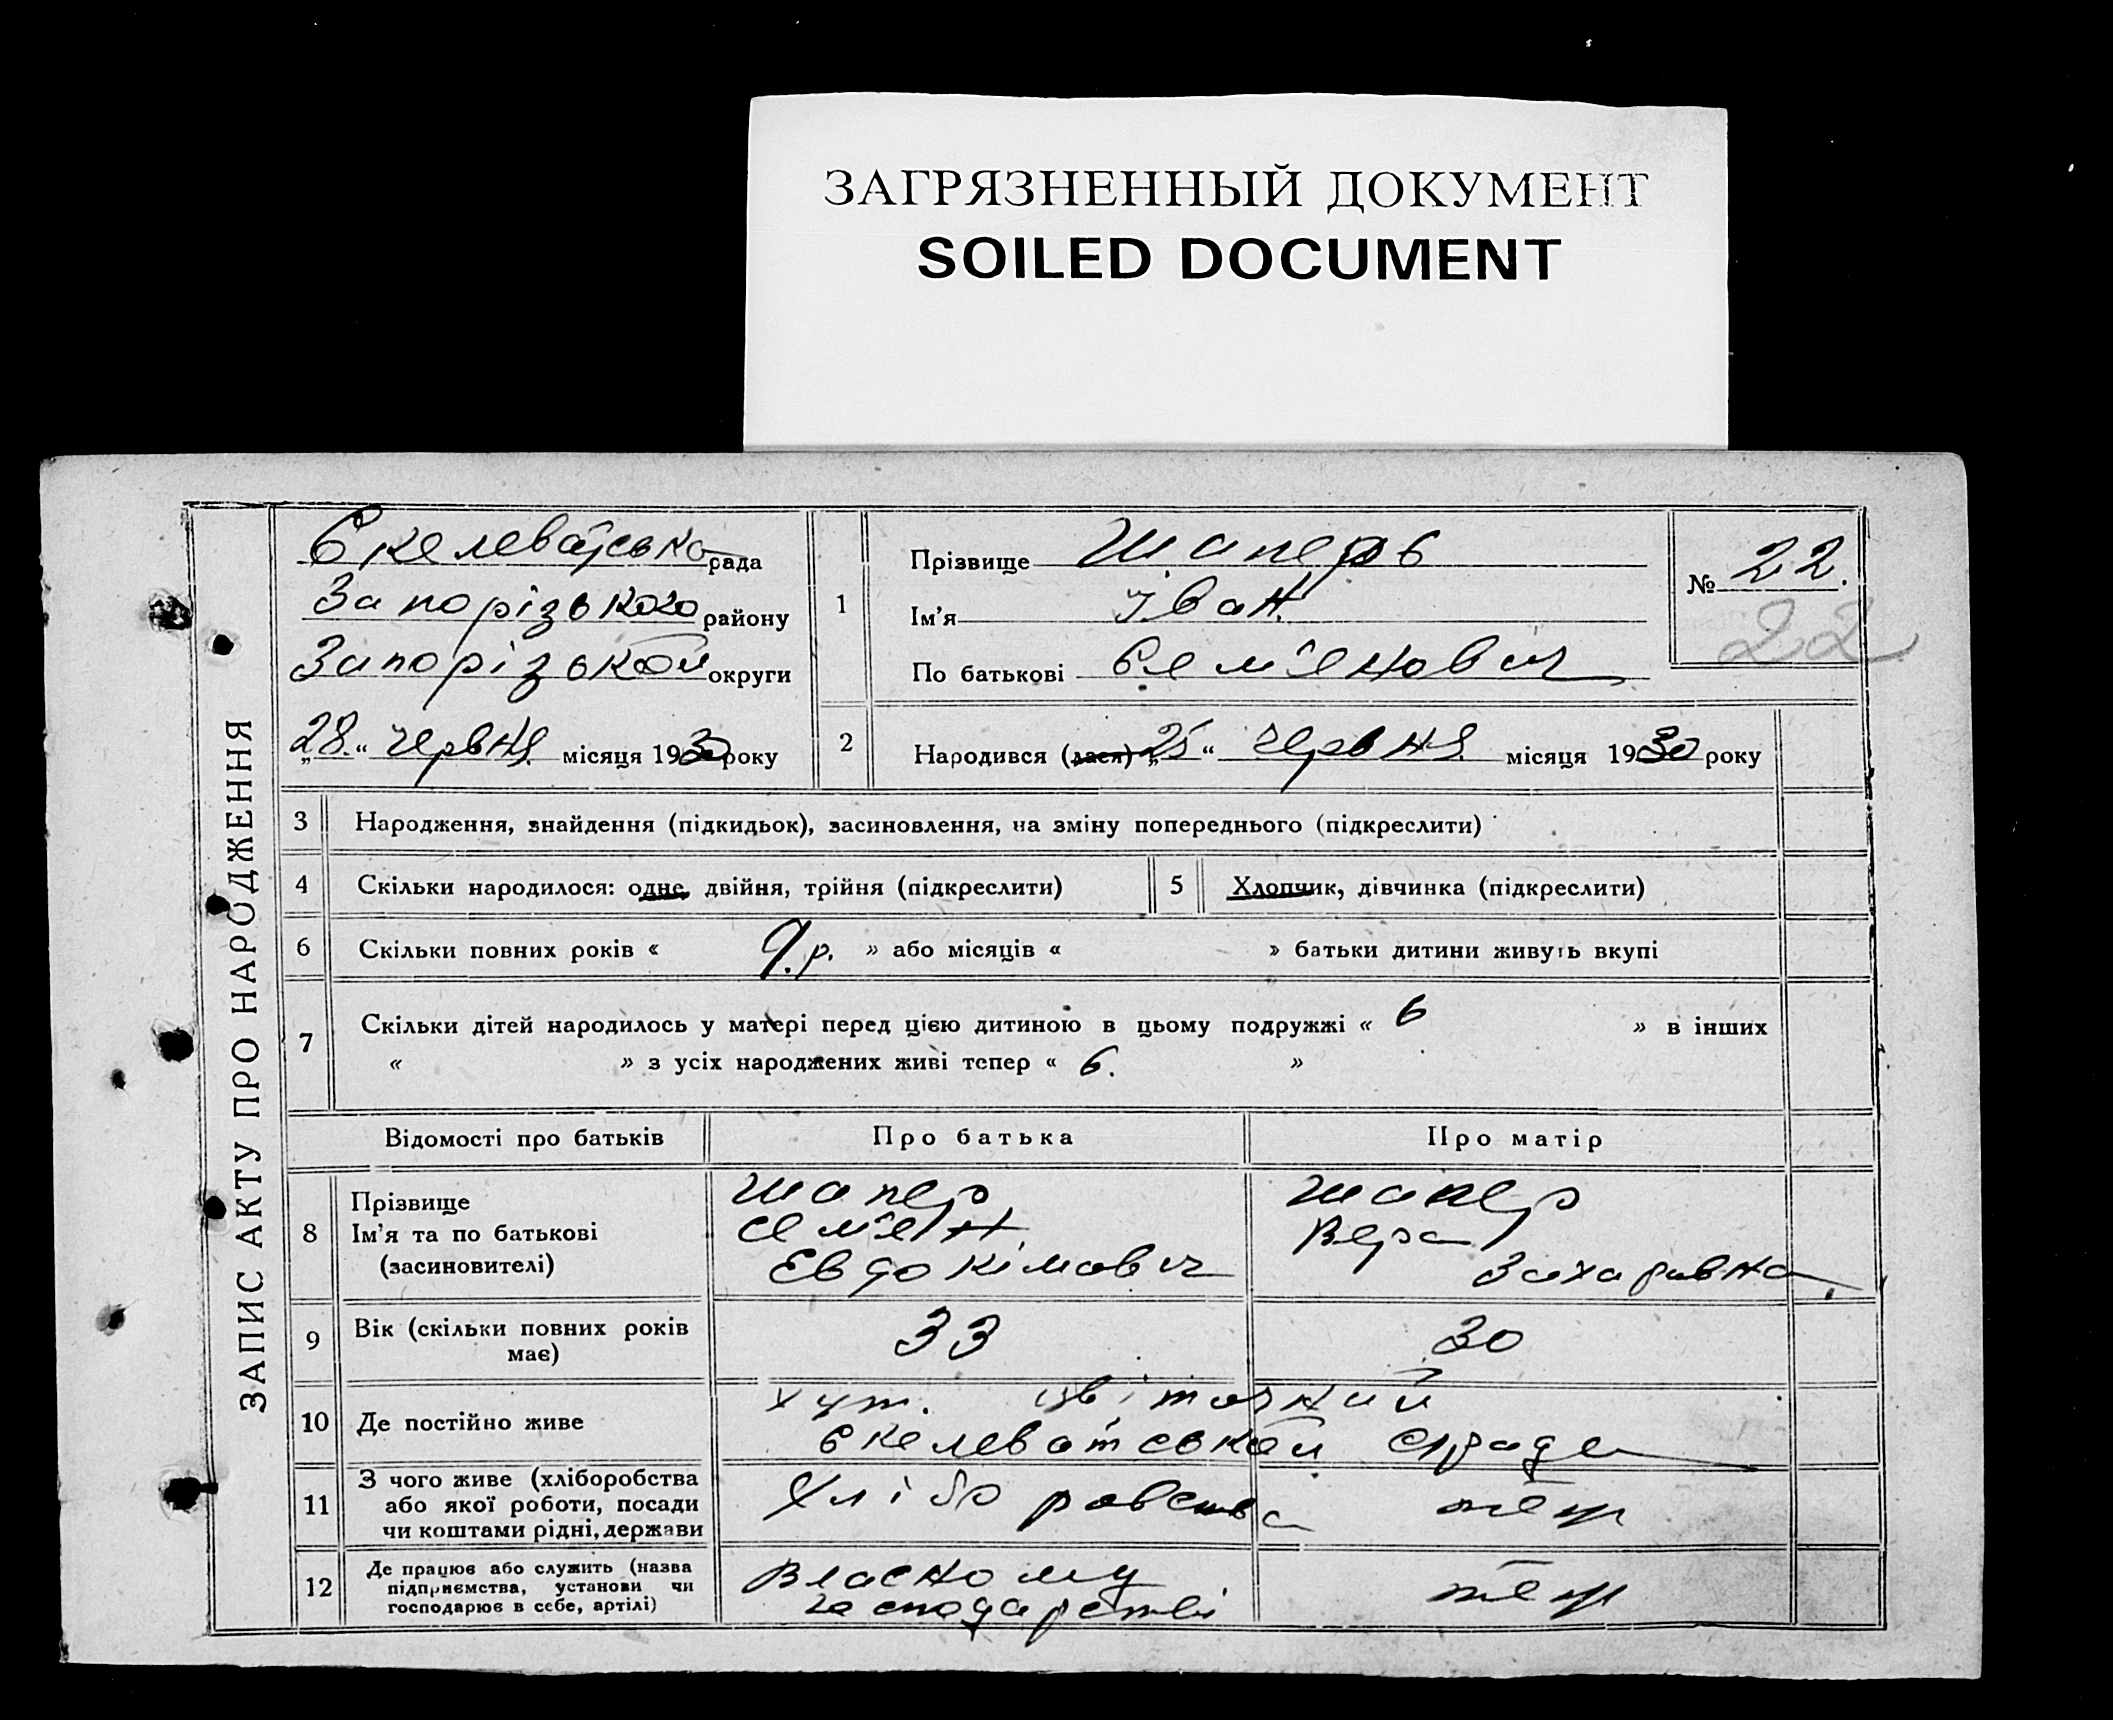 ЗАГРЯЗНЕННЫЙ ДОКУМЕНТ
SOILED DOCUMENT
ЗАПИС АКТУ ПРО НАРОДЖЕННЯ
Скелеватська рада
Запорізького району
Запорізькой округи
„28“ червня місяця 1930 року
1
Прізвище Шаперь
Ім'я Іван.
По батькові Семенович
№ 22.
22
2 Народився (лася) „25“ червня місяця 1930 року
3 Народження, знайдення (підкидьок), засиновлення, на зміну попереднього (підкреслити)
4 Скільки народилося: одне, двійня, трійня (підкреслити) 5 Хлопчик, дівчинка (підкреслити)
6 Скільки повних років « 9.р. » або місяців « » батьки дитини живуть вкупі
7 Скільки дітей народилось у матері перед цією дитиною в цьому подружжі « 6 » в інших
« » з усіх народжених живі тепер « 6. »
Відомості про батьків Про батька Про матір
8 Прізвище Шапер Шапер
Ім'я та по батькові Семен Вера
(засиновителі) Евдокімович Захаровна
9 Вік (скільки повних років має) 33 30
10 Де постійно живе хут. Цвіточний
Скелеватськой
11 З чого живе (хліборобства
або якої роботи, посади
чи коштами рідні, держави
Хлібо
12 Де працює або служить (назва
підприємства, установи чи
господарює в себе, артілі)
Власному
господарстві